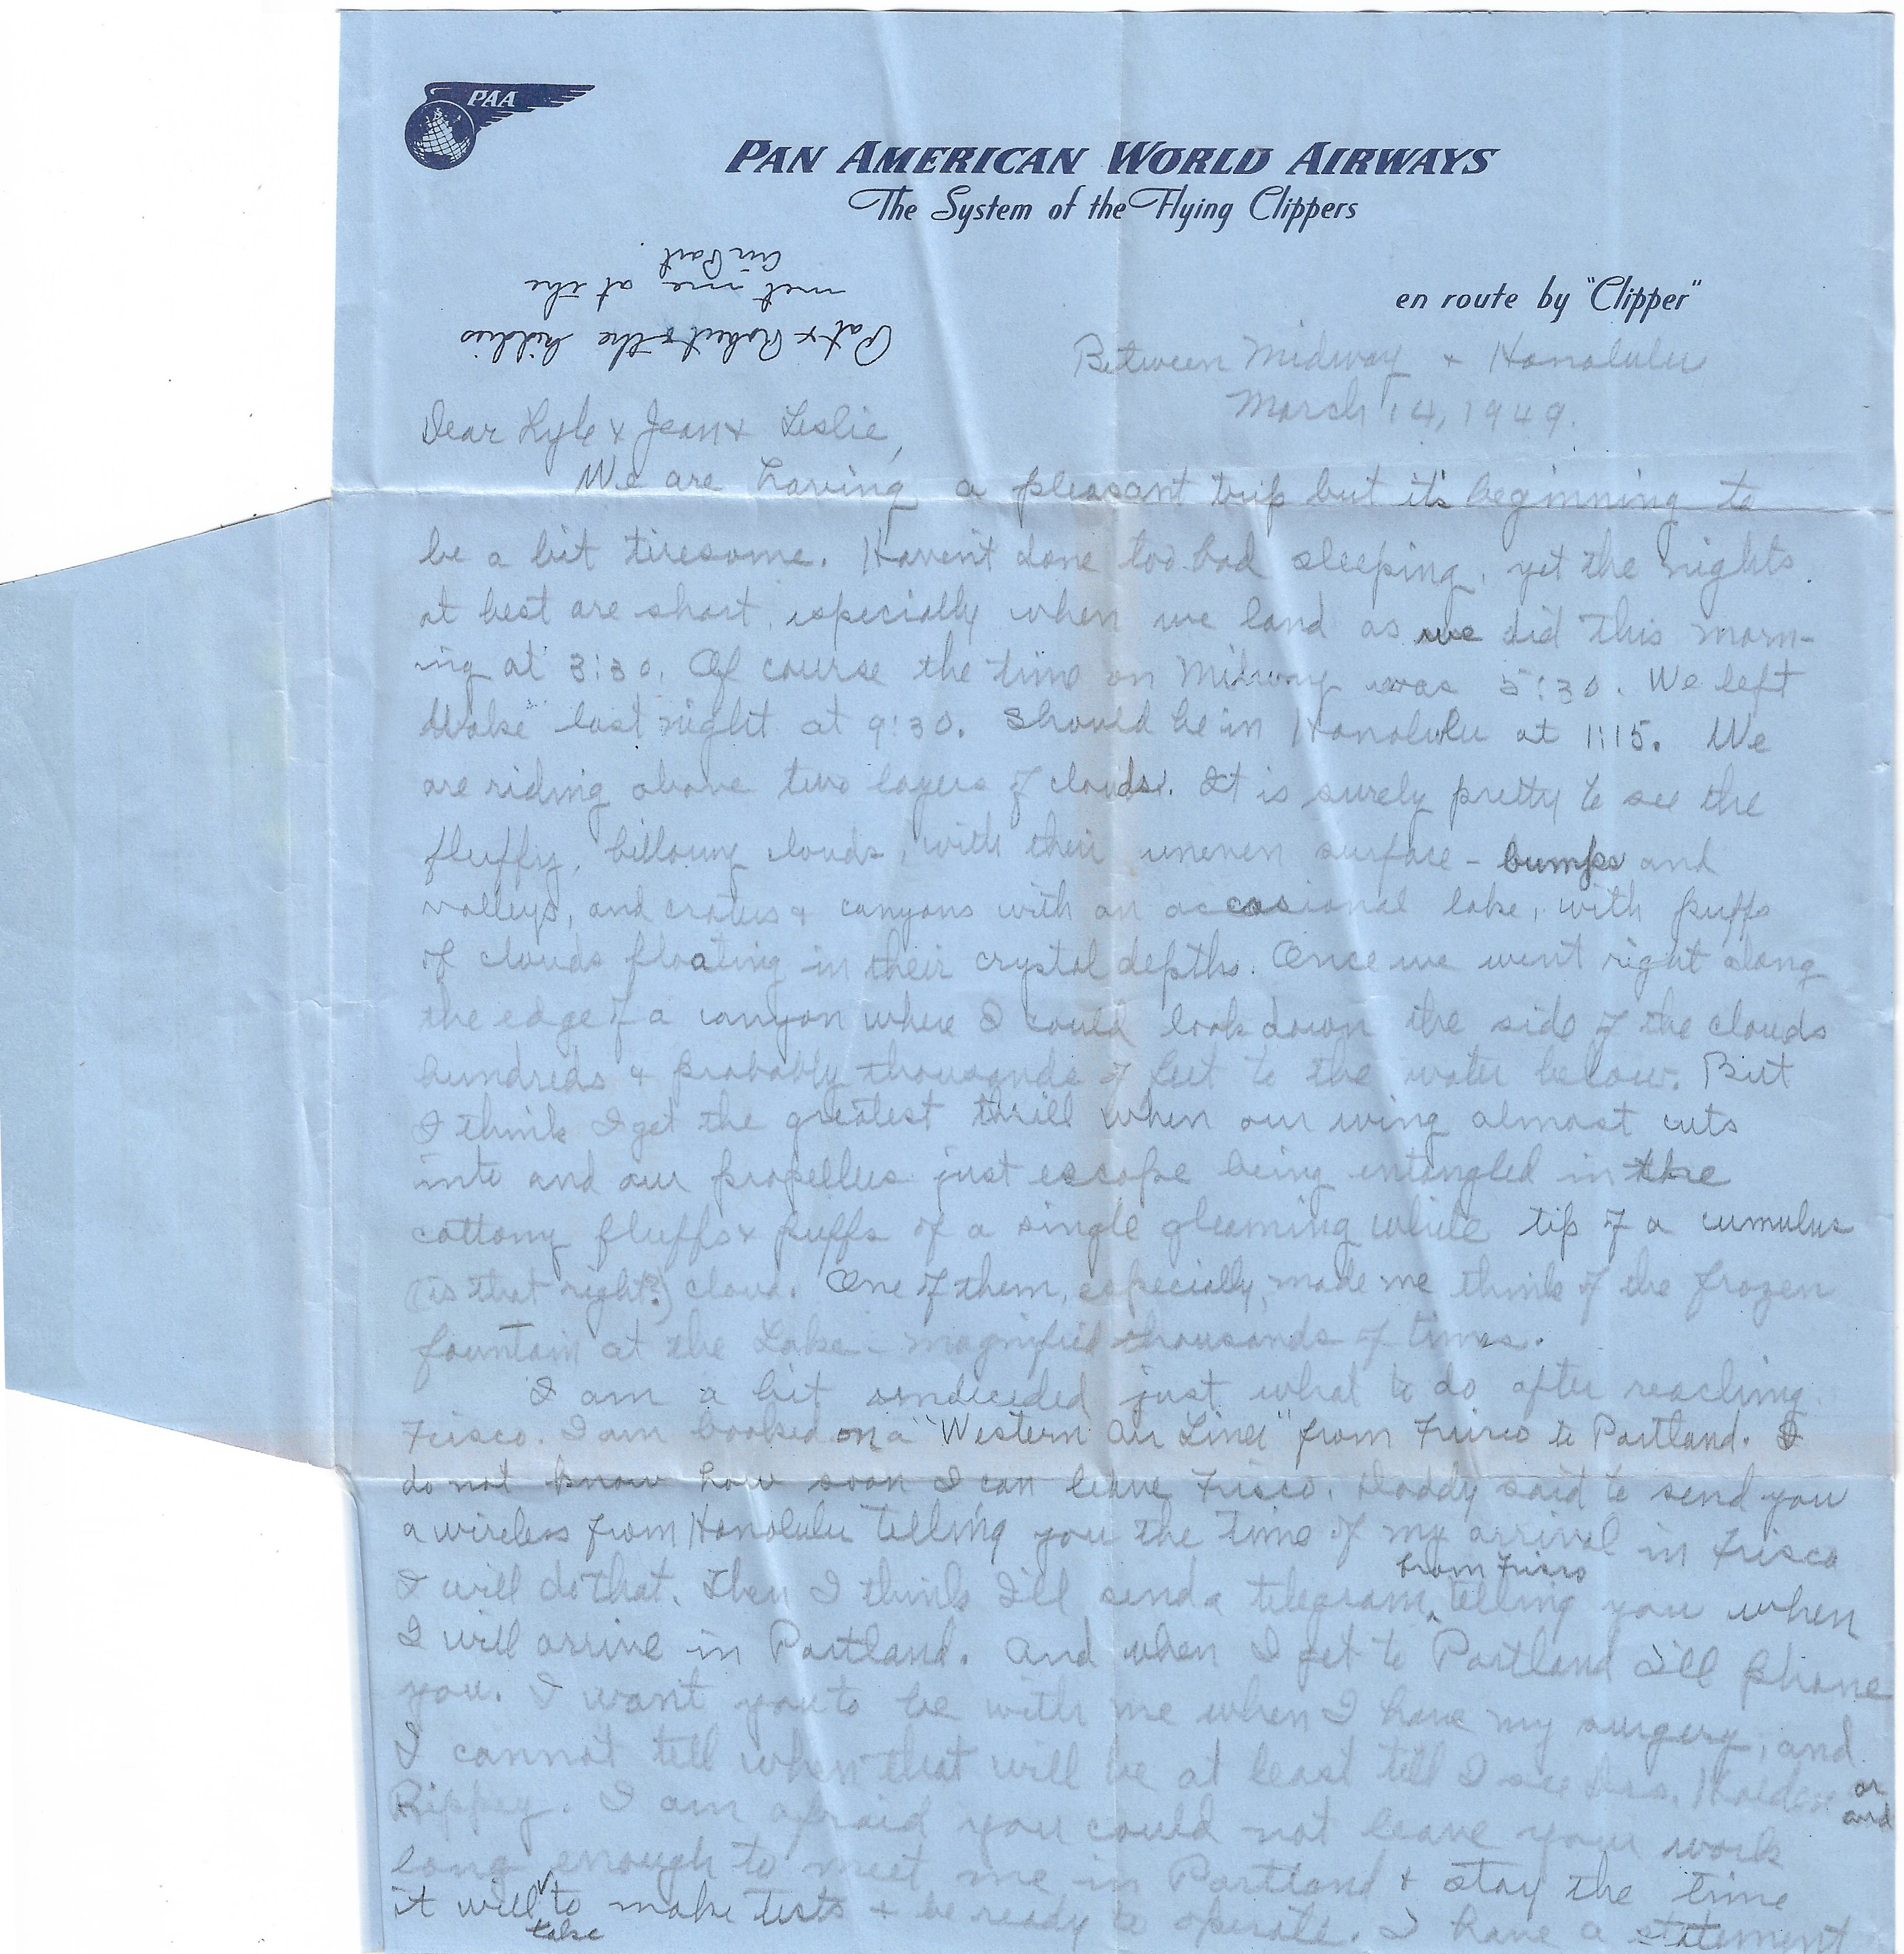 PAA
PAN AMERICAN WORLD AIRWAYS
The System of the Flying Clippers
en route by "Clipper"
Pat & Robert & the kiddies
met me at the
Air Port.
Between Midway & Honolulu
March 14, 1949.
Dear Lyle & Jean & Leslie,
We are having a pleasant trip but it's beginning to
be a bit tiresome. Haven't done too bad sleeping, yet the nights
at best are short, especially when we land as we did this morn-
ing at 3:30. Of course the time on Midway was 5:30. We left
Wake last night at 9:30. Should be in Honolulu at 1:15. We
are riding above two layers of clouds. It is surely pretty to see the
fluffy, billowy clouds, with their uneven surface - bumps and
valleys, and craters & canyons with an occasional lake, with puffs
of clouds floating in their crystal depths. Once we went right along
the edge of a canyon where I could look down the side of the clouds
hundreds & probably thousands of feet to the water below. But
I think I get the greatest thrill when our wing almost cuts
into and our propellers just escape being entangled in the
cottony fluffs & puffs of a single gleaming white tip of a cumulus
(is that right?) cloud. One of them, especially, made me think of the frozen
fountain at the Lake - magnified thousands of times.
I am a bit undecided just what to do after reaching
Frisco. I am booked on a "Western Air Lines" from Frisco to Portland. I
do not know how soon I can leave Frisco. Daddy said to send you
a wireless from Honolulu telling you the time of my arrival in Frisco
I will do that. Then I think I'll send a telegram from Frisco telling you when
I will arrive in Portland. And when I get to Portland I'll phone
you. I want you to be with me when I have my surgery, and
I cannot tell when that will be at least till I see Drs. Holden or and
Rippey. I am afraid you could not leave your work
long enough to meet me in Portland & stay the time
it will take to make tests & be ready to operate. I have a statement